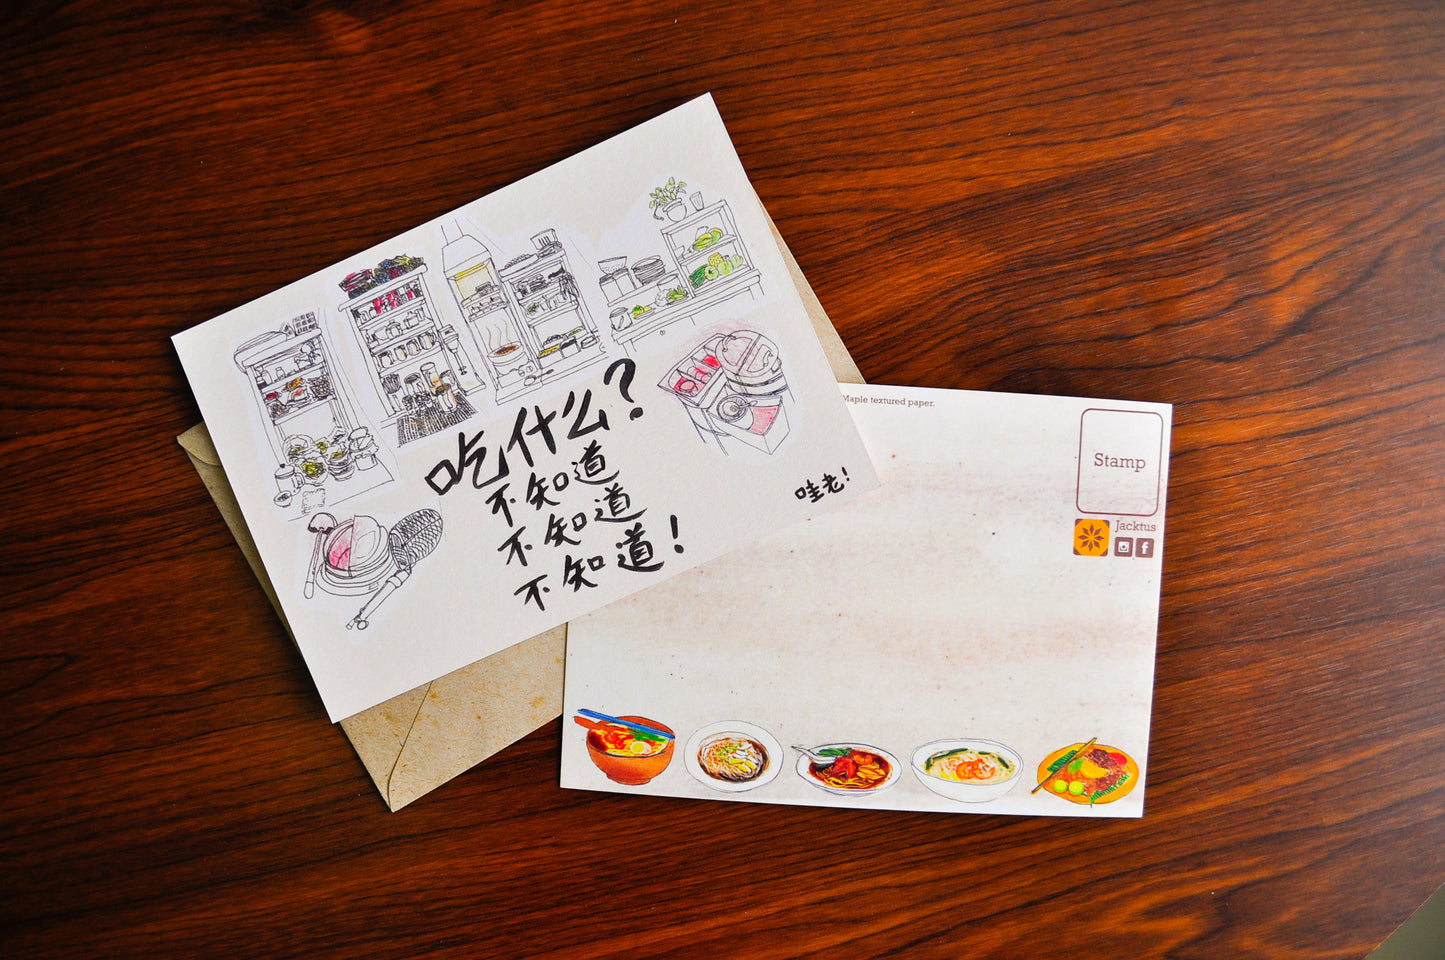 吃什么?
不知道
不知道
不知道!
哇老!
Maple textured paper.
Stamp
Jacktus